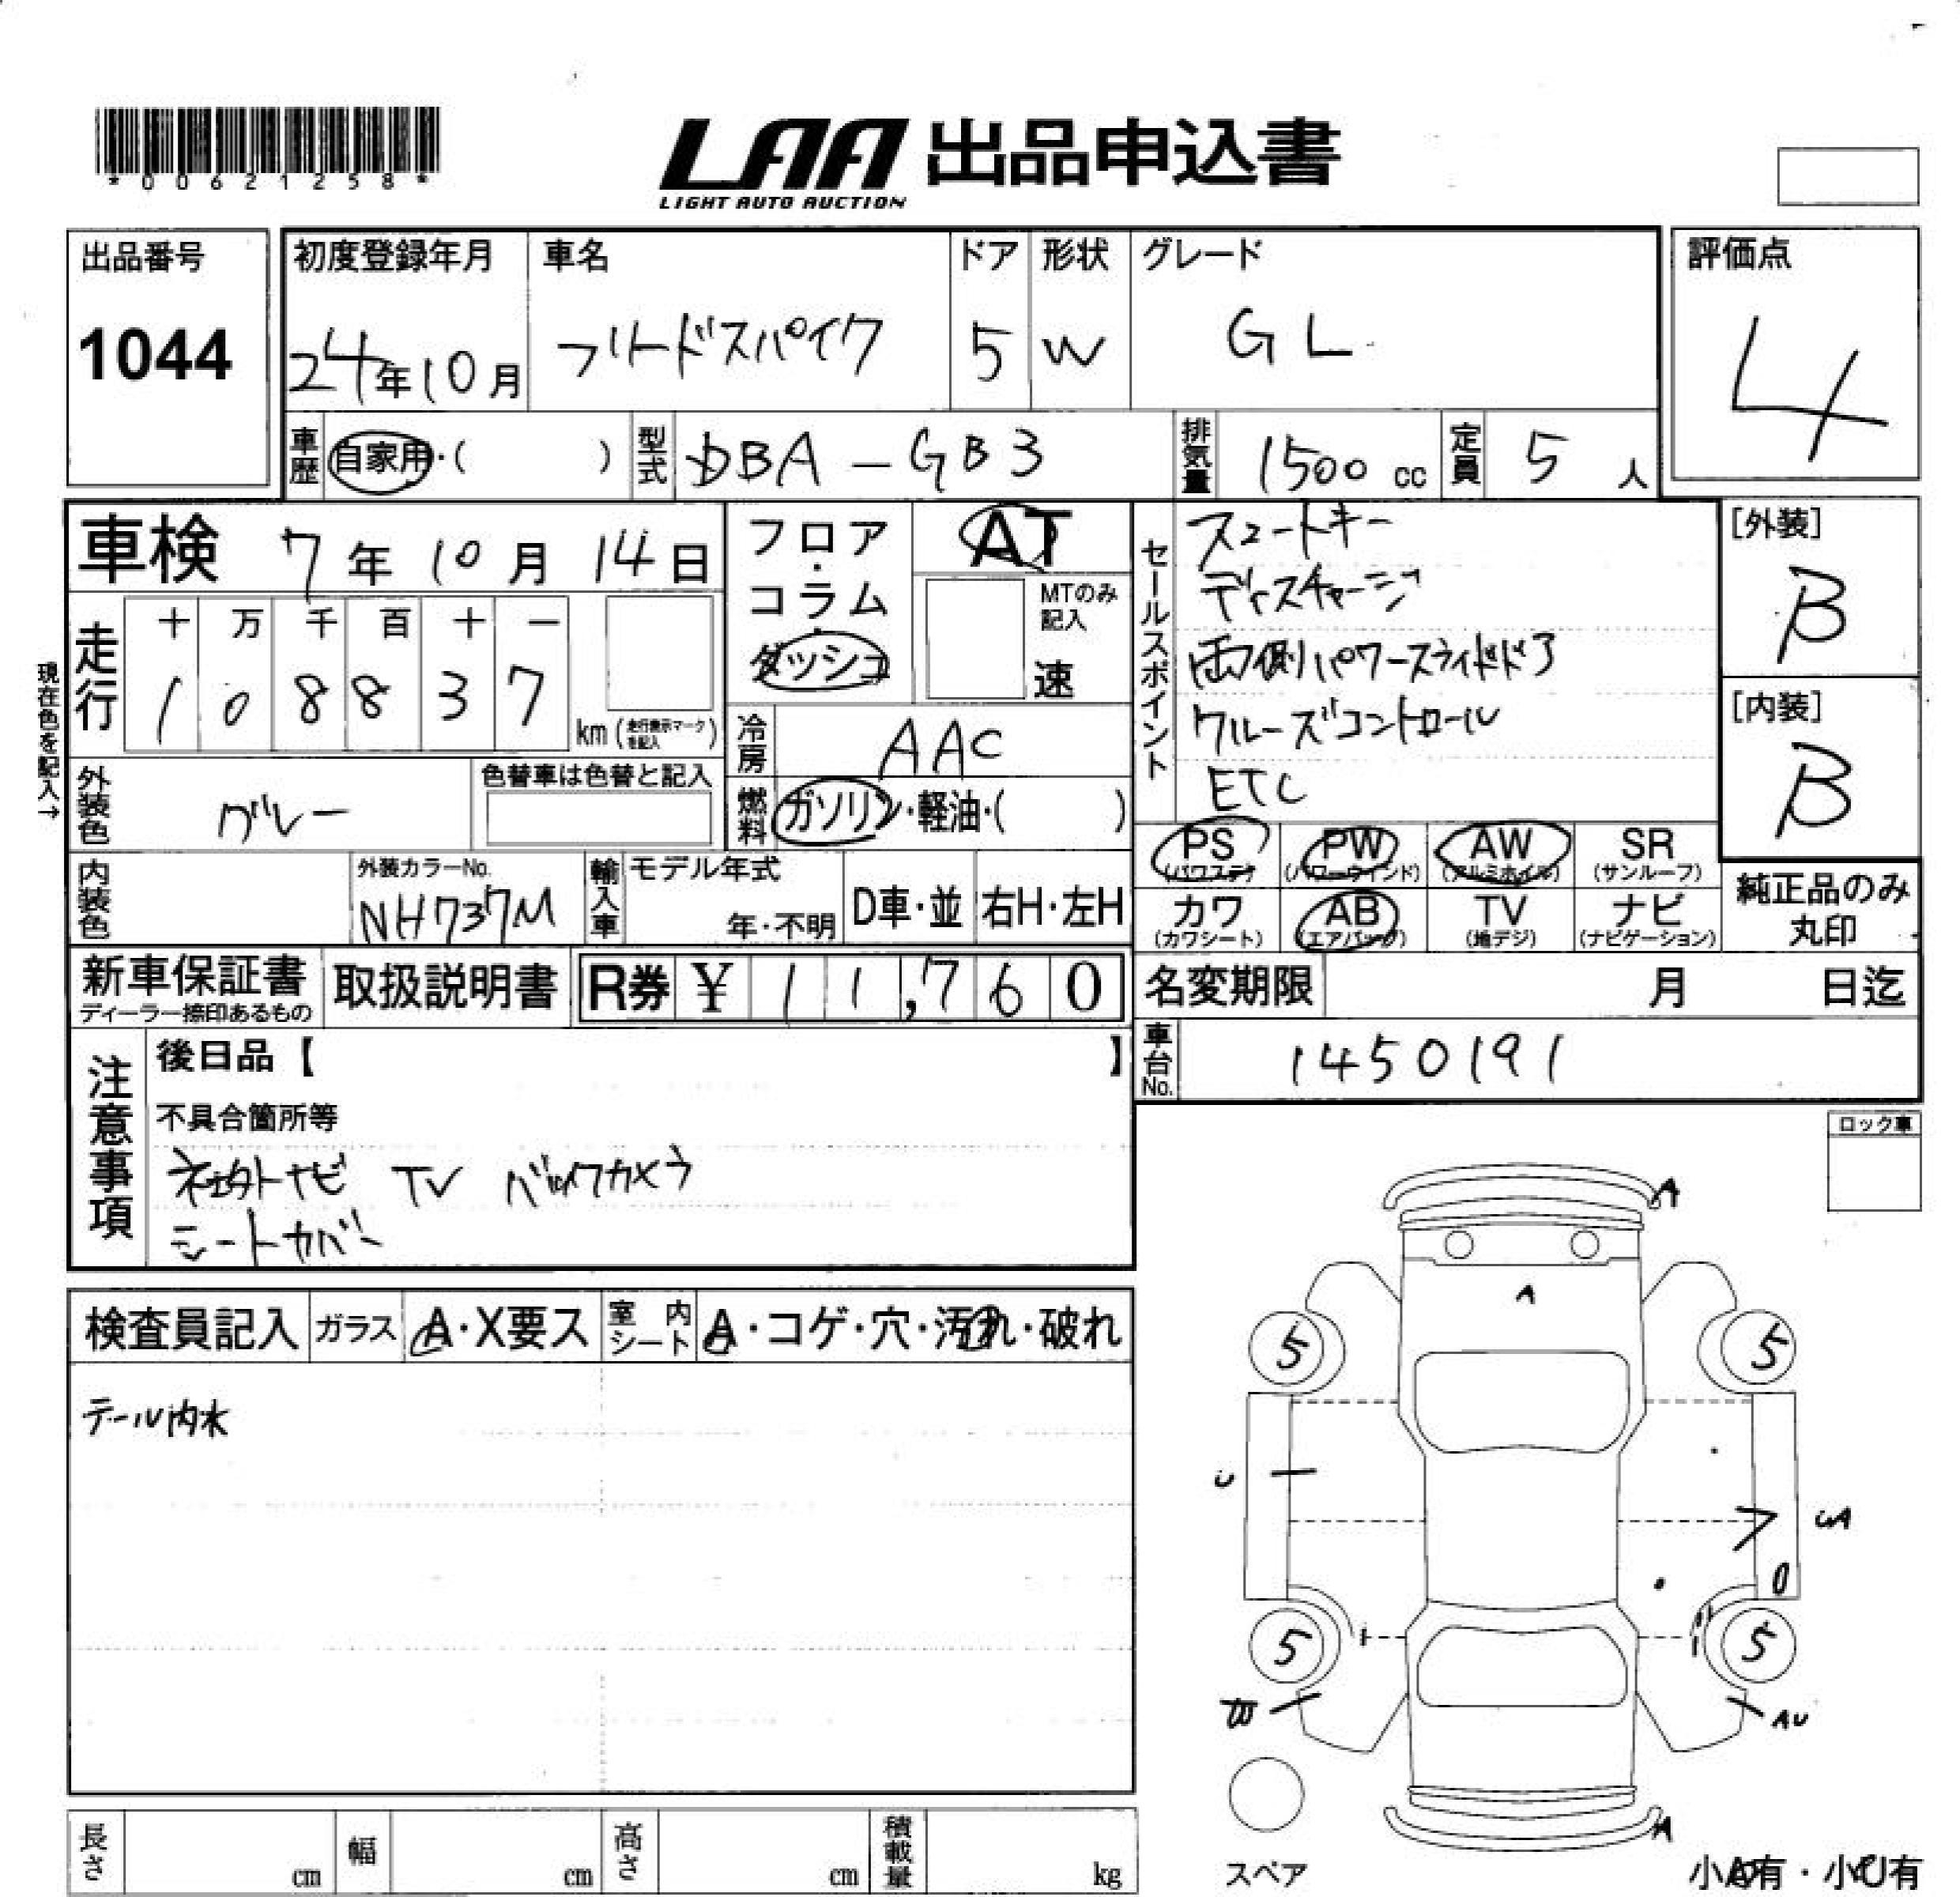 *00621258*
LAA 出品申込書
LIGHT AUTO AUCTION
出品番号
1044
初度登録年月
24年10月
車名
フリードスパイク
ドア
5
形状
W
グレード
GL
評価点
4
車歴
自家用・( )
型式
DBA-GB3
排気量
1500 cc
定員
5 人
車検 7年 10月 14日
フロア・コラム・ダッシュ
AT
MTのみ記入
速
走行
十 万 千 百 十 一
1 0 8 8 3 7
km (走行表示マークを記入)
現在色を記入→
冷房
AAC
燃料
ガソリン・軽油・( )
外装色
グレー
色替車は色替と記入
内装色
外装カラーNo.
NH737M
輸入車
モデル年式
年・不明
D車・並
右H・左H
セールスポイント
スマートキー
ディスチャージ
両側パワースライドドア
クルーズコントロール
ETC
[外装]
B
[内装]
B
PS (パワステ)
PW (パワーウインド)
AW (アルミホイル)
SR (サンルーフ)
カワ (カワシート)
AB (エアバッグ)
TV (地デジ)
ナビ (ナビゲーション)
純正品のみ丸印
新車保証書
ディーラー捺印あるもの
取扱説明書
R券 ¥ 11,760
名変期限 月 日迄
車台No.
1450191
注意事項
後日品【 】
不具合箇所等
社外ナビ TV バックカメラ
シートカバー
ロック車
検査員記入
ガラス
A・X要ス
室内シート
A・コゲ・穴・汚れ・破れ
テール内水
A
A
5
5
U
UA
5
5
AU
A
スペア
小A有・小U有
長さ cm
幅 cm
高さ cm
積載量 kg